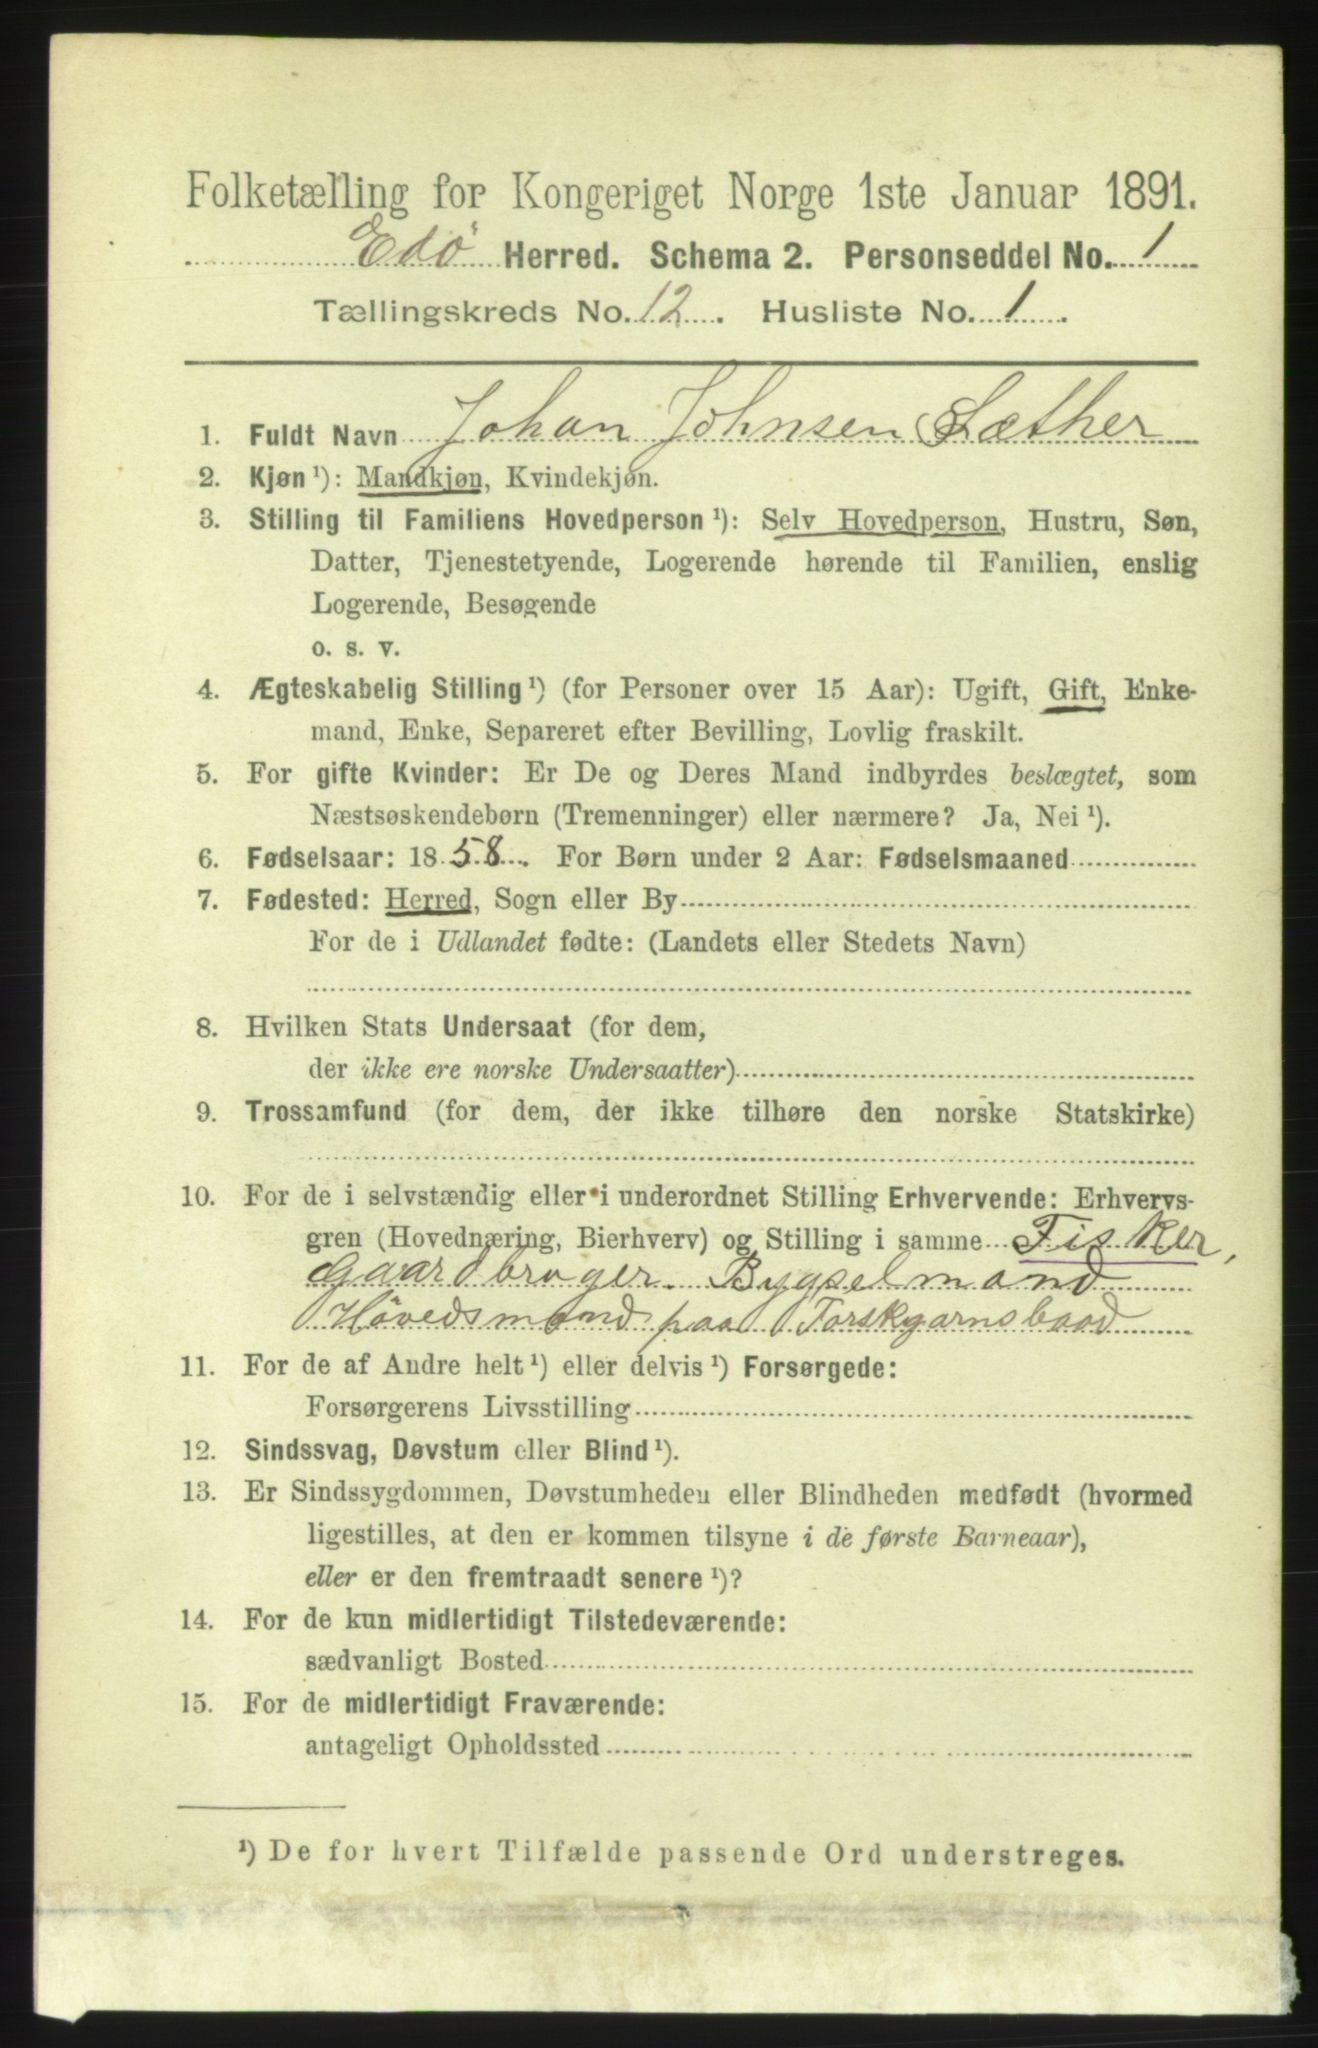 Folketælling for Kongeriget Norge 1ste Januar 1891.
Edö Herred. Schema 2. Personseddel No. 1
Tællingskreds No. 12. Husliste No. 1.
1. Fuldt Navn Johan Johnsen Sæther
2. Kjøn ¹): Mandkjøn, Kvindekjøn.
3. Stilling til Familiens Hovedperson ¹): Selv Hovedperson, Hustru, Søn,
Datter, Tjenestetyende, Logerende hørende til Familien, enslig
Logerende, Besøgende
o. s. v.
4. Ægteskabelig Stilling ¹) (for Personer over 15 Aar): Ugift, Gift, Enke-
mand, Enke, Separeret efter Bevilling, Lovlig fraskilt.
5. For gifte Kvinder: Er De og Deres Mand indbyrdes beslægtet, som
Næstsøskendebørn (Tremenninger) eller nærmere? Ja, Nei ¹).
6. Fødselsaar: 1858. For Børn under 2 Aar: Fødselsmaaned
7. Fødested: Herred, Sogn eller By
For de i Udlandet fødte: (Landets eller Stedets Navn)
8. Hvilken Stats Undersaat (for dem,
der ikke ere norske Undersaatter)
9. Trossamfund (for dem, der ikke tilhøre den norske Statskirke)
10. For de i selvstændig eller i underordnet Stilling Erhvervende: Erhvervs-
gren (Hovednæring, Bierhverv) og Stilling i samme Fisker,
Gaardbruger. Bygselmand
Hövedsmand paa Torskgarnsbaad
11. For de af Andre helt ¹) eller delvis ¹) Forsørgede:
Forsørgerens Livsstilling
12. Sindssvag, Døvstum eller Blind ¹).
13. Er Sindssygdommen, Døvstumheden eller Blindheden medfødt (hvormed
ligestilles, at den er kommen tilsyne i de første Barneaar),
eller er den fremtraadt senere ¹)?
14. For de kun midlertidigt Tilstedeværende:
sædvanligt Bosted
15. For de midlertidigt Fraværende:
antageligt Opholdssted
¹) De for hvert Tilfælde passende Ord understreges.